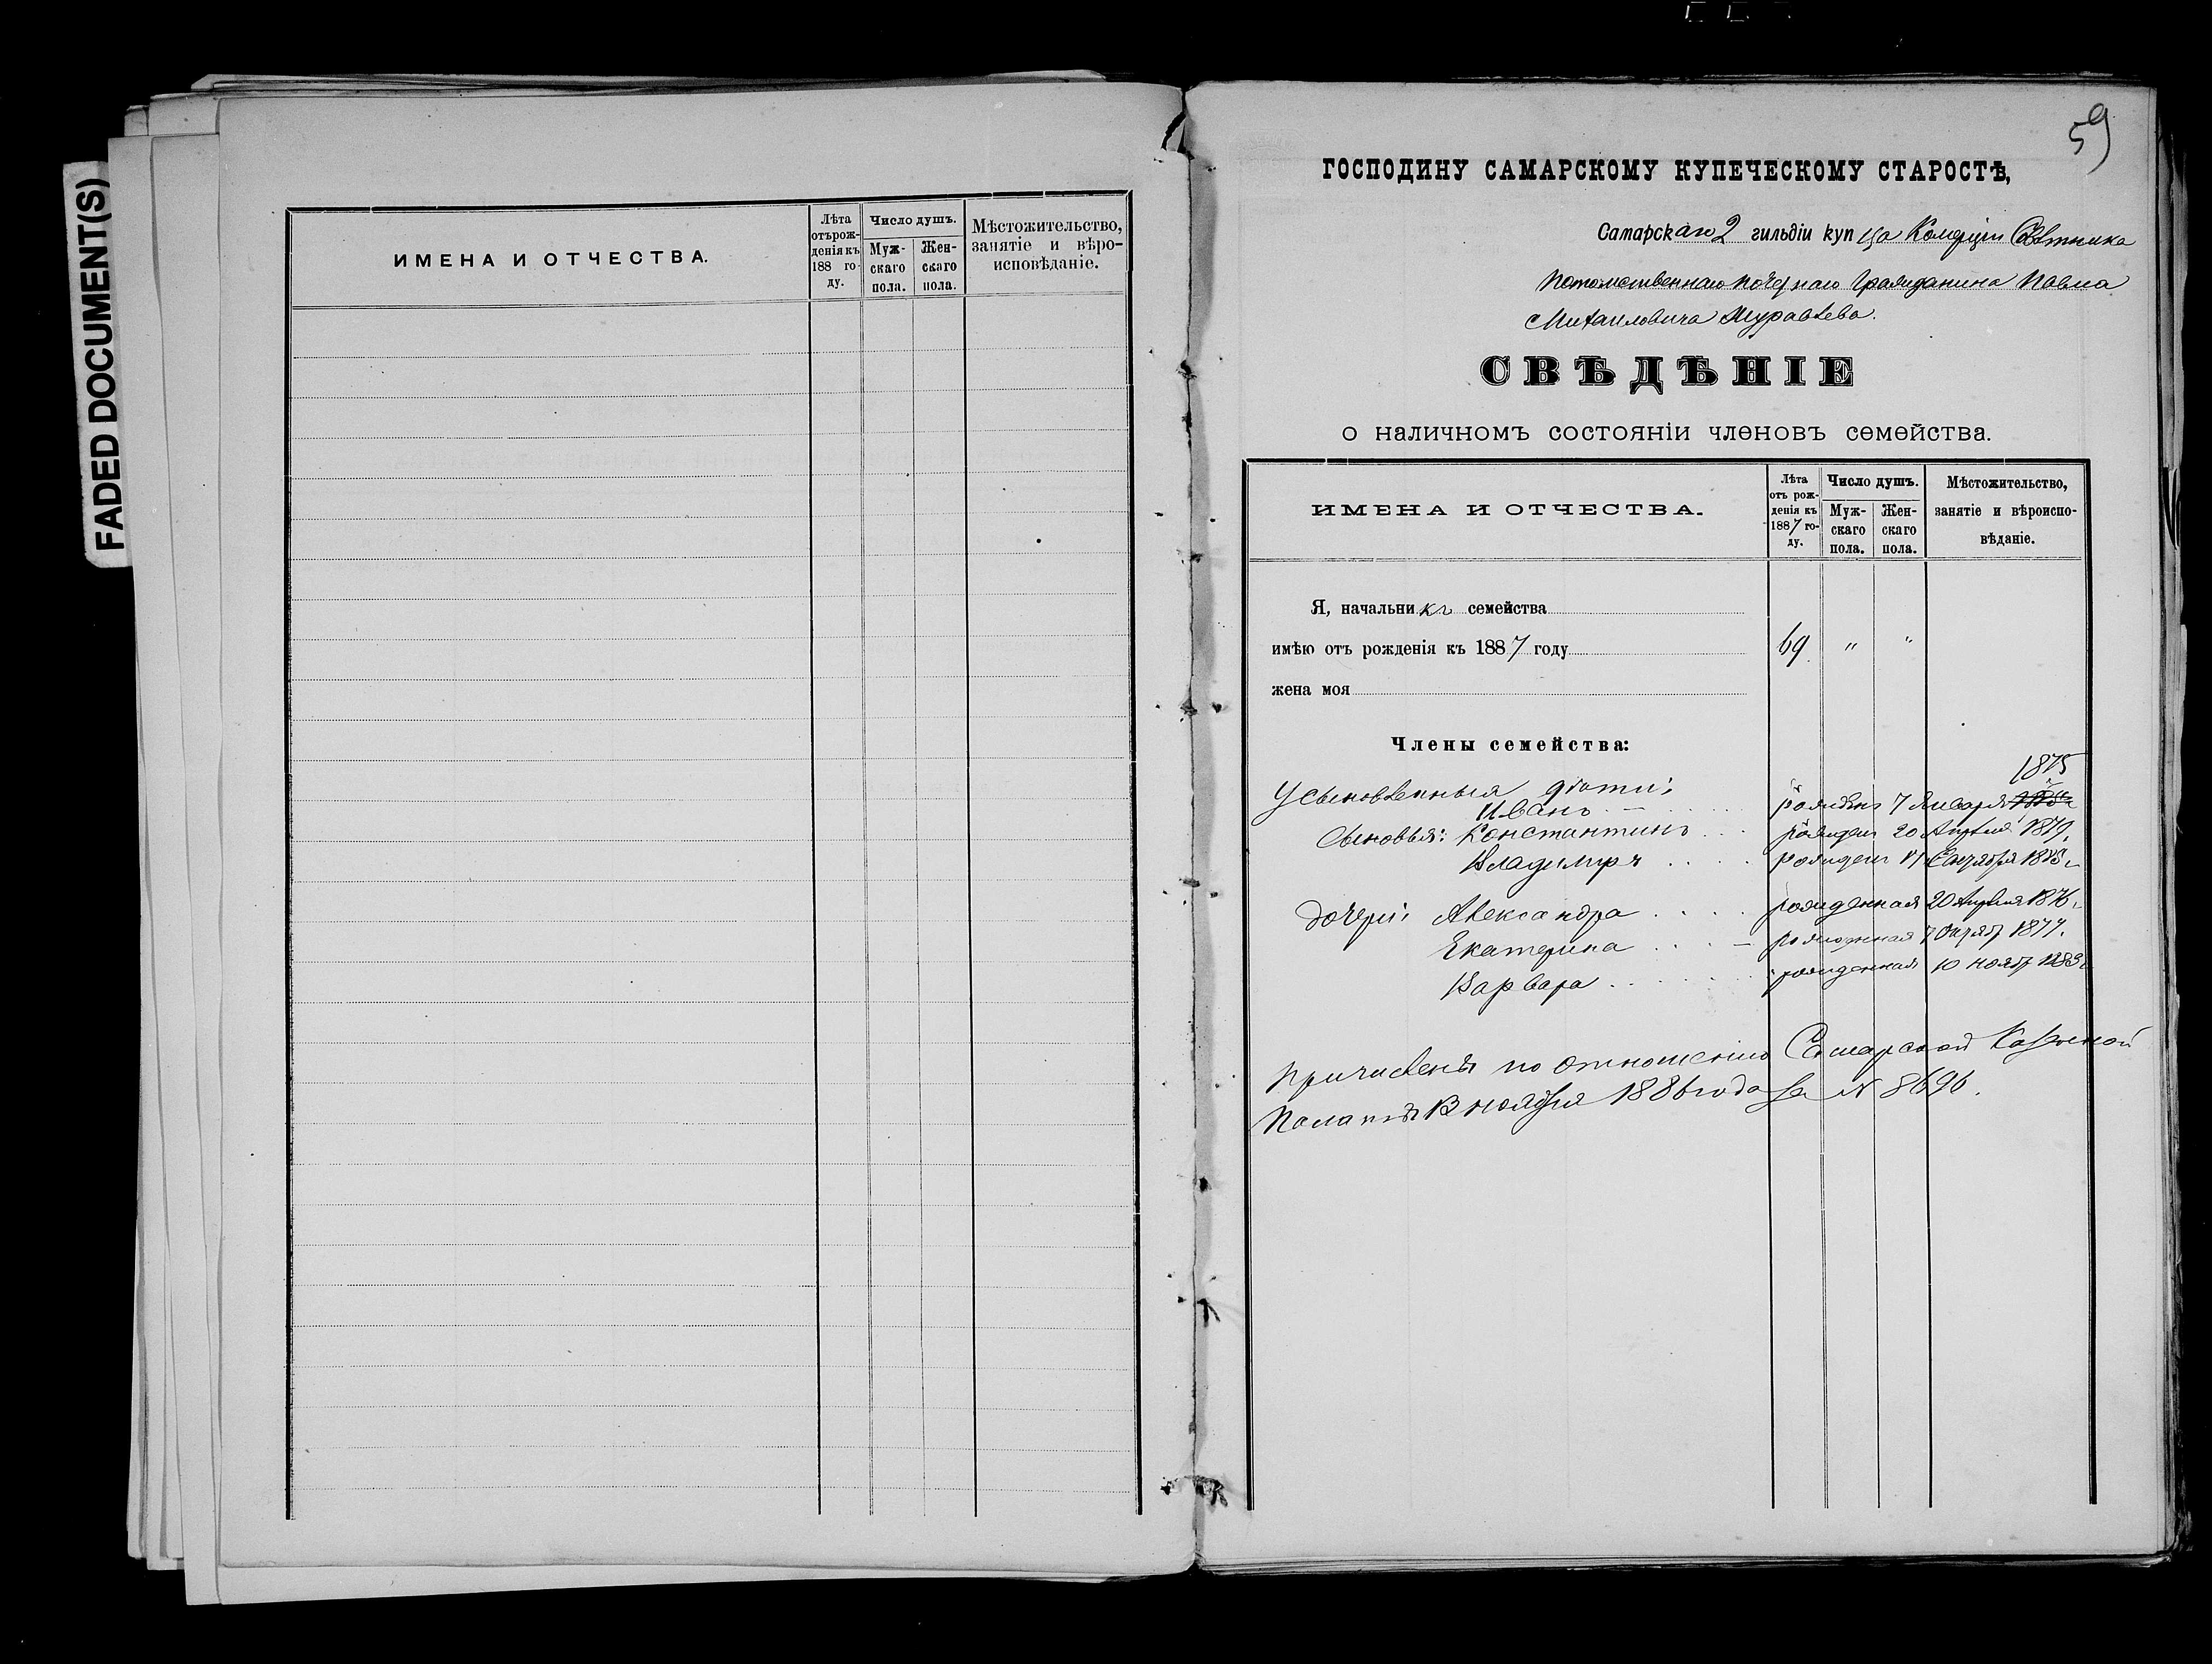 FADED DOCUMENT(S)
ИМЕНА И ОТЧЕСТВА.
Лѣта
отърож-
денія къ
188 го-
ду.
Число душъ.
Муж-
скаго
пола.
Жен-
скаго
пола.
Мѣстожительство,
занятіе и вѣро-
исповѣданіе.
59
ГОСПОДИНУ САМАРСКОМУ КУПЕЧЕСКОМУ СТАРОСТѢ,
Самарскаго 2 гильдіи купца Комерціи Совѣтника
Потомственнаго почетнаго Гражданина Павла
Михаиловича Журавлева.
СВѢДѢНІЕ
о наличномъ состояніи членовъ семейства.
ИМЕНА И ОТЧЕСТВА.
Лѣта
отъ рож-
денія къ
1887 го-
ду.
Число душъ.
Муж-
скаго
пола.
Жен-
скаго
пола.
Мѣстожительство,
занятіе и вѣроиспо-
вѣданіе.
Я, начальникъ семейства
имѣю отъ рожденія къ 1887 году 69 " "
жена моя
Члены семейства:
1875
Усыновленныя дѣти:
Иванъ рожденъ 7 Января
Сыновья: Константинъ рожденъ 20 Апреля 1879.
Владимиръ рожденъ
дочери: Александра рожденная 20 Апреля 1876.
Екатерина рожденная 7 Октяб 1877.
Варвара рожденная 10 нояб 1883
Причислены по отношенію Самарской Казенной
Палаты 13 ноября 1886 года за № 8696.